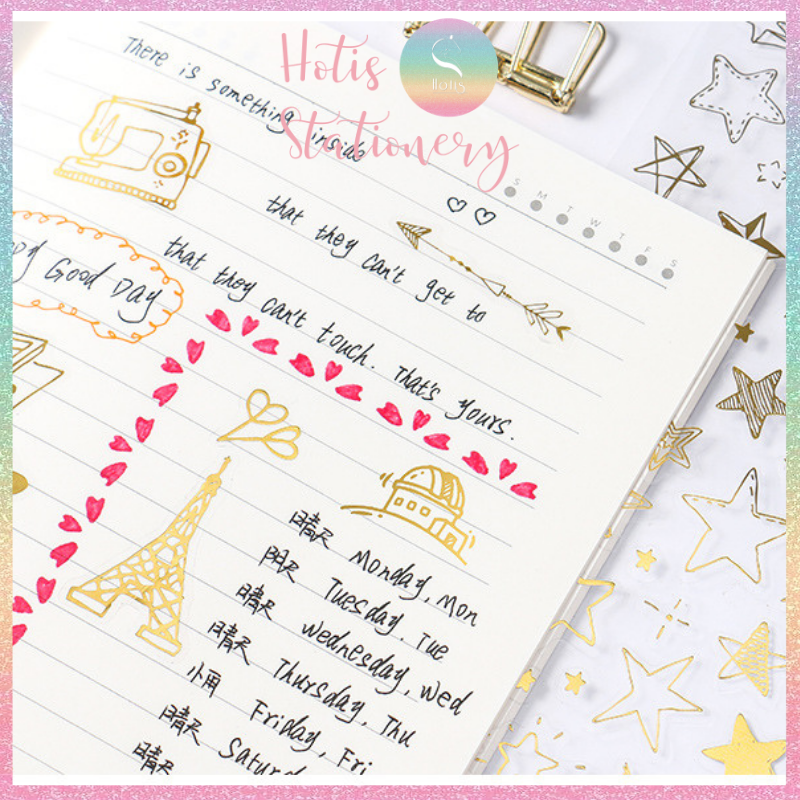 Hotis
Stationery
Hotis
There is something inside
S M T W T F S
that they can't get to
Good Day
that they can't touch. That's yours.
晴天 Monday, Mon
阴天 Tuesday, Tue
晴天 Wednesday, Wed
晴天 Thursday, Thu
小雨 Friday, Fri
晴天
晴天